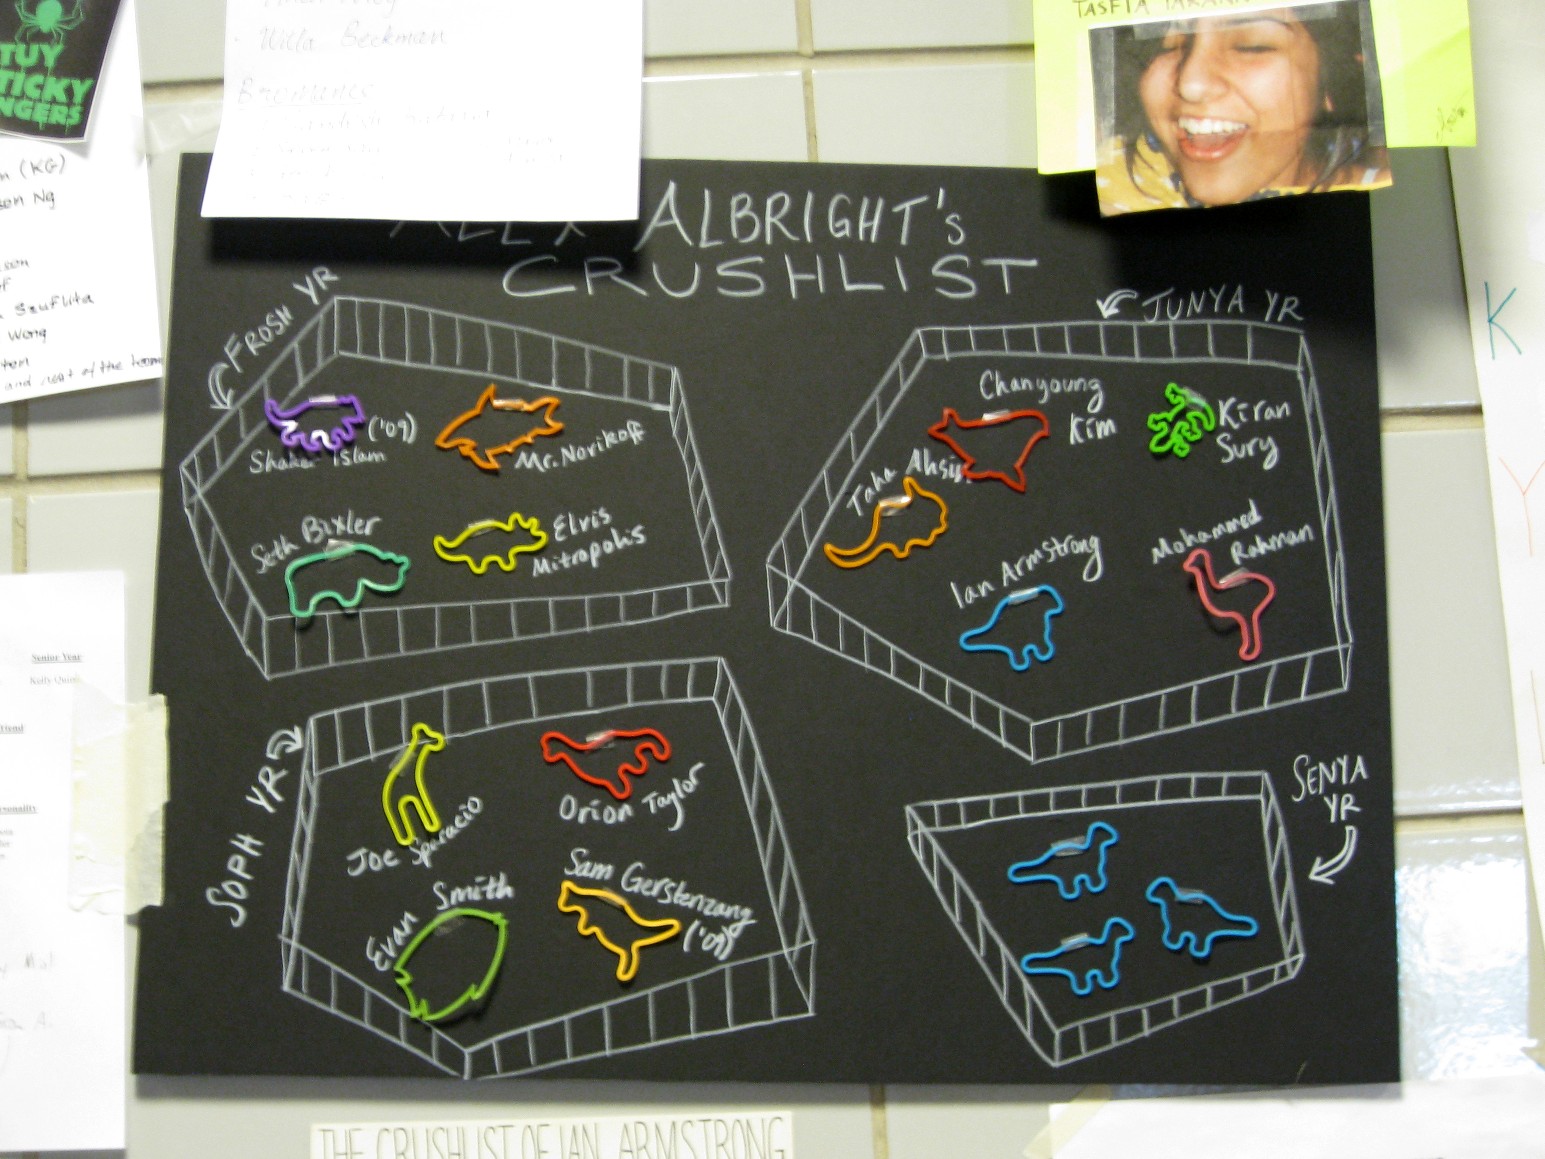 TUY
TICKY
NGERS
(KG)
Ng
Szuflita
Wong
and rest of the team
Willa Beckman
Bromance
TASFIA
ALEX ALBRIGHT'S
CRUSHLIST
FROSH YR
('09)
Islam
Mr. Novikoff
Seth Bixler
Elvis
Mitropolis
JUNYA YR
Chanyoung
Kim
Kiran
Sury
Taha Ahsin
Ian Armstrong
Mohammed
Rahman
SOPH YR
Joe Sparacio
Orion Taylor
Evan Smith
Sam Gerstenzang
('09)
SENYA
YR
Senior Year
Kelly Quinn
K
Y
THE CRUSHLIST OF IAN ARMSTRONG